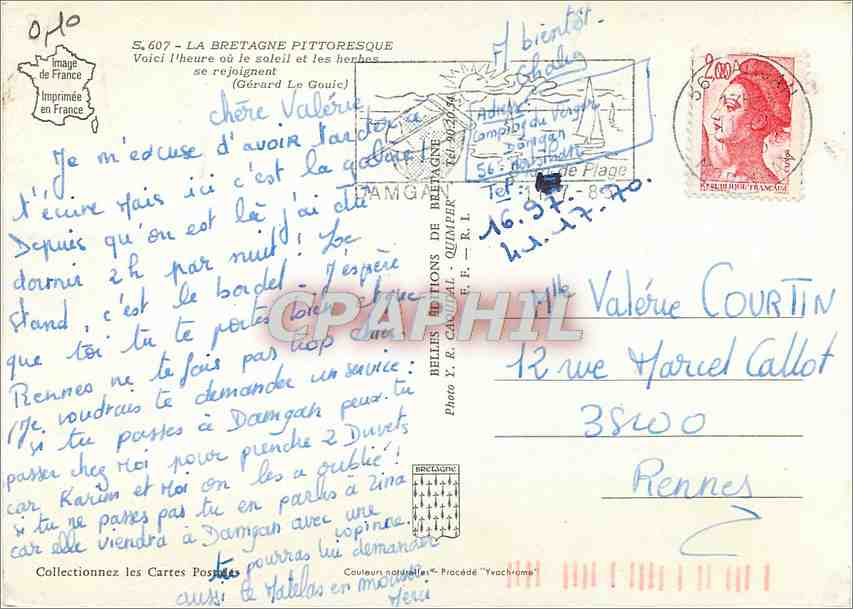 0,10
Image
de France
Imprimée
en France
S. 607 - LA BRETAGNE PITTORESQUE
Voici l'heure où le soleil et les herbes
se rejoignent
(Gérard Le Gouic)
chère Valérie
Je m'excuse d'avoir tardé à
t'écrire Mais ici c'est la galère !
Depuis qu'on est là j'ai dû
dormir 2h par nuit ! Le
stand, c'est le bordel. J'espère
que toi tu te portes bien et que
Rennes ne te fais pas trop chier
(Je voudrais te demander un service :
si tu passes à Damgan peux-tu
passer chez Moi pour prendre 2 Duvets
car Karim et Moi on les a oublié !
si tu ne passes pas tu en parles à Zina
car elle viendra à Damgan avec une
copine.
tu pourras lui demander
aussi le Matelas en mousse.
Merci
Collectionnez les Cartes Postales
A bientôt
Adresse
Camping du Verger
Damgan
56
de Plage
DAMGAN
Tel
17-7-8
16.97.
41.17.70.
BELLES ÉDITIONS DE BRETAGNE
Photo Y. R. CAOUDAL - QUIMPER - Tél. 90-20-34
F. F. — R. I.
CPAPHIL
BRETAGNE
Couleurs naturelles - Procédé "Yvochrome"
2,00
RÉPUBLIQUE FRANÇAISE
56 DAMGAN
Mlle Valérie COURTIN
12 rue Marcel Callot
35100
Rennes